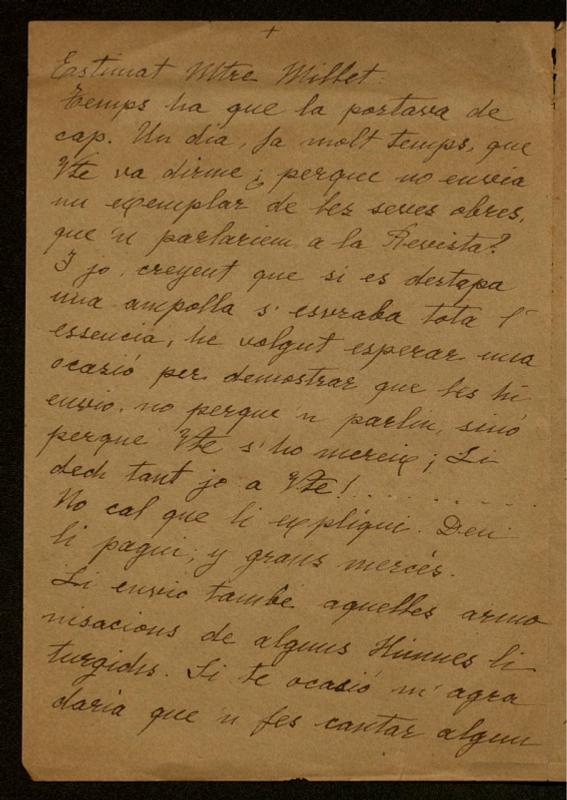 +
Estimat Mtre Millet:
Temps ha que la portava de
cap. Un dia, fa molt temps, que
Vte va dirme ¿ perque no envia
un exemplar de les seves obres,
que 'n parlariem a la Revista?
I jo, creyent que si es destapa
una ampolla s' esvraba tota l'
essencia, he volgut esperar una
ocasió per demostrar que les hi
envio, no perque 'n parlin, sinó
perque Vte s'ho mereix; Li
dech tant jo a Vte! . . . . . . .
No cal que li expliqui. Deu
li pagui, y grans mercés.
Li envio també aquelles armo
nisacions de alguns Himnes li
turgichs. Si te ocasió m' agra
daria que 'n fes cantar algun